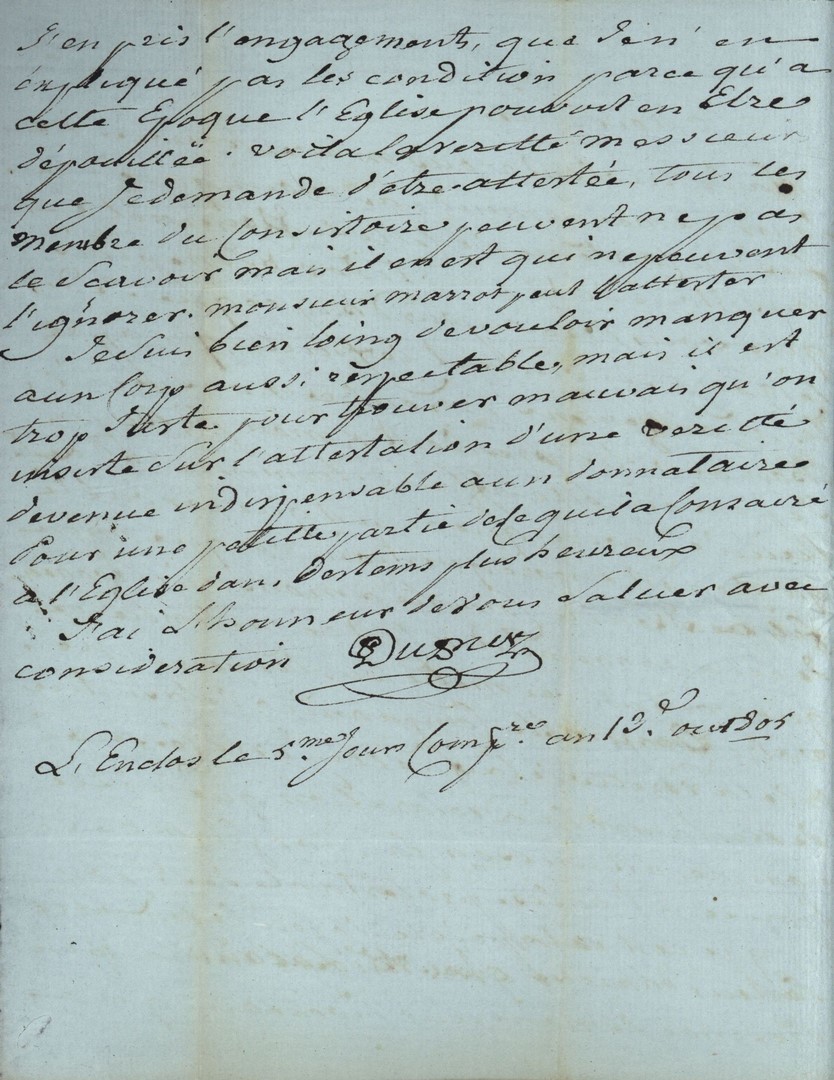 J'en pris l'engagement, que Jen' en
expliqué pas les condition parce qu'a
cette Epoque l'Eglise pouvoit en Etre
dépouilléë. voila la veritté messieurs
que Je demande d'etre attestée, tous les
membre du Consistoire peuvent ne pas
le Scavoir mais il en est qui ne peuvent
l'ignorer. monsieur marrot peut l'attester
Je Suis bien loing de vouloir manquer
a un Corp aussi respectable, mais il est
trop Juste pour trouver mauvais qu'on
insiste Sur l'attestation d'une veritté
devenue indispensable a un donnataire
Pour une petitte partie de Ce quil a Consacré
a l'Eglise dans des tems plus heureux
J'ai L'honneur de vous Saluer avec
consideration
L'Enclos le 5.me Jours Comp.re an 13.e ou 1805